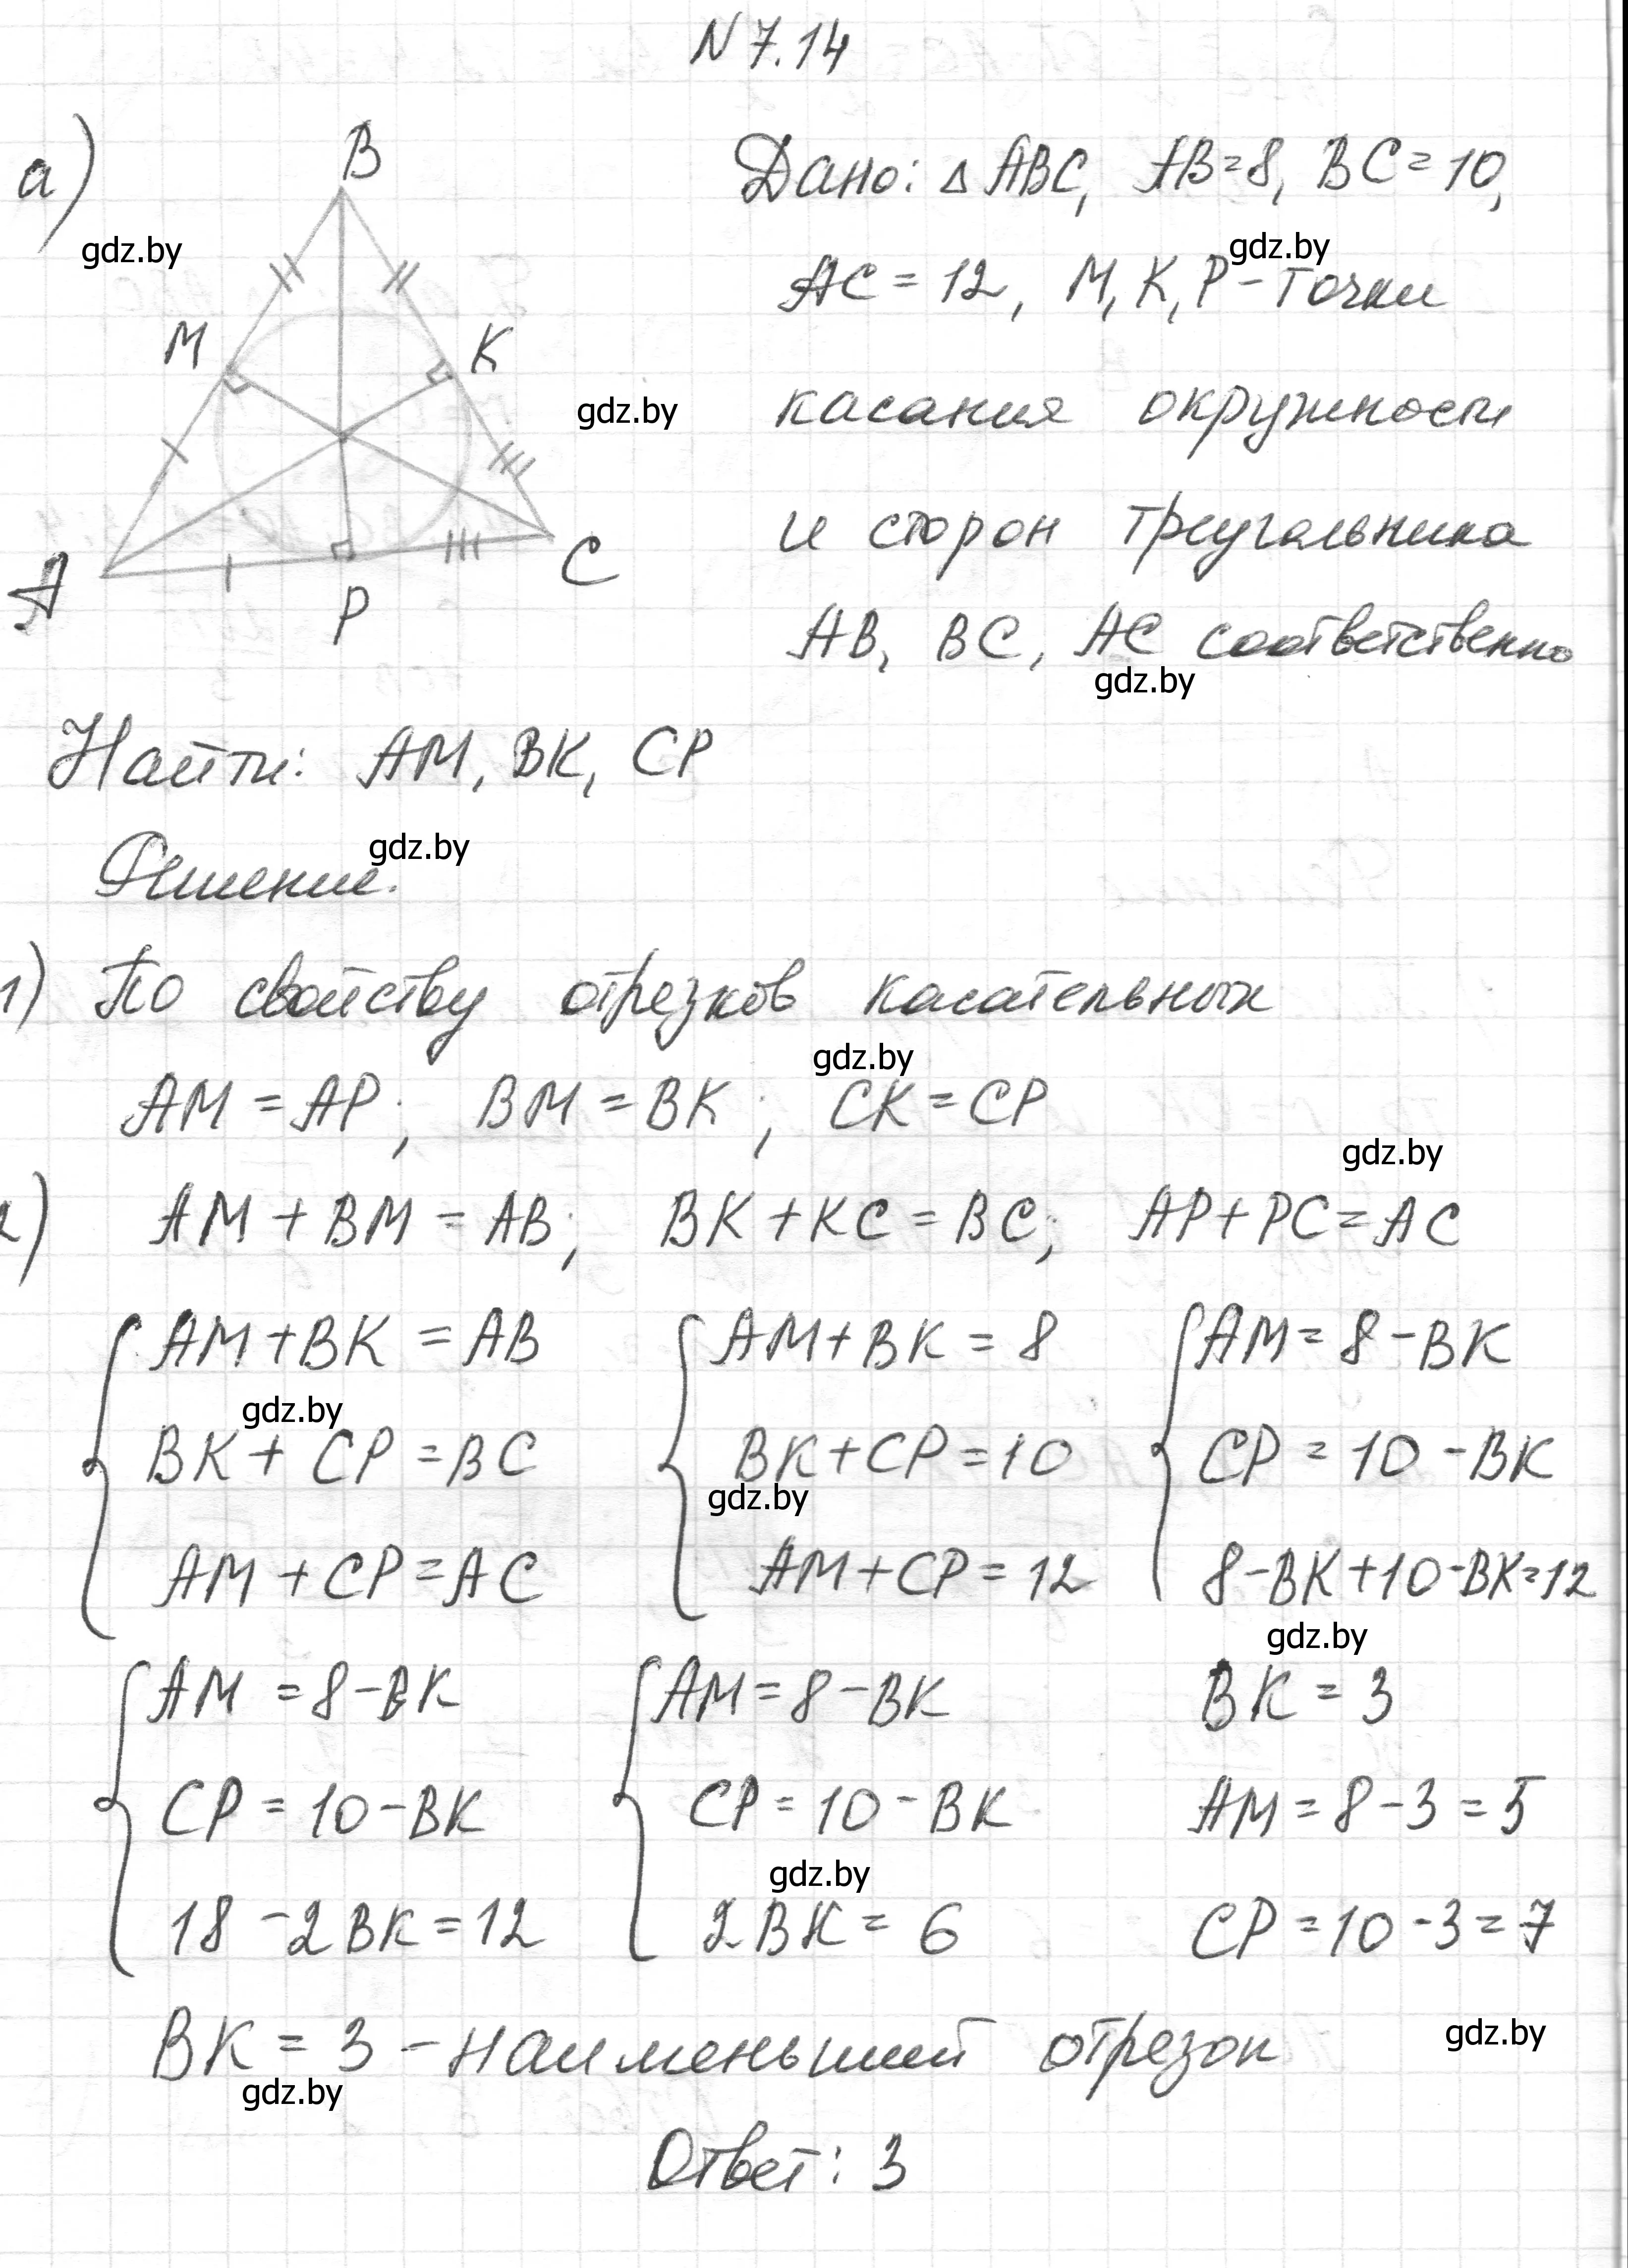 N 7.14
а)
B
gdz.by
M
K
gdz.by
A
P
C
Дано: △ ABC, AB=8, BC=10,
gdz.by
AC = 12, M, K, P - точки
касания окружности
и сторон треугольника
AB, BC, AC соответственно
gdz.by
Найти: AM, BK, CP
gdz.by
Решение.
1) По свойству отрезков касательных
gdz.by
AM = AP; BM = BK; CK = CP
gdz.by
2) AM + BM = AB; BK + KC = BC; AP + PC = AC
AM + BK = AB AM + BK = 8 AM = 8 - BK
gdz.by
BK + CP = BC BK + CP = 10 CP = 10 - BK
gdz.by
AM + CP = AC AM + CP = 12 8 - BK + 10 - BK = 12
gdz.by
AM = 8 - BK AM = 8 - BK BK = 3
CP = 10 - BK CP = 10 - BK AM = 8 - 3 = 5
gdz.by
18 - 2BK = 12 2BK = 6 CP = 10 - 3 = 7
gdz.by
BK = 3 - наименьший отрезок
gdz.by
Ответ: 3